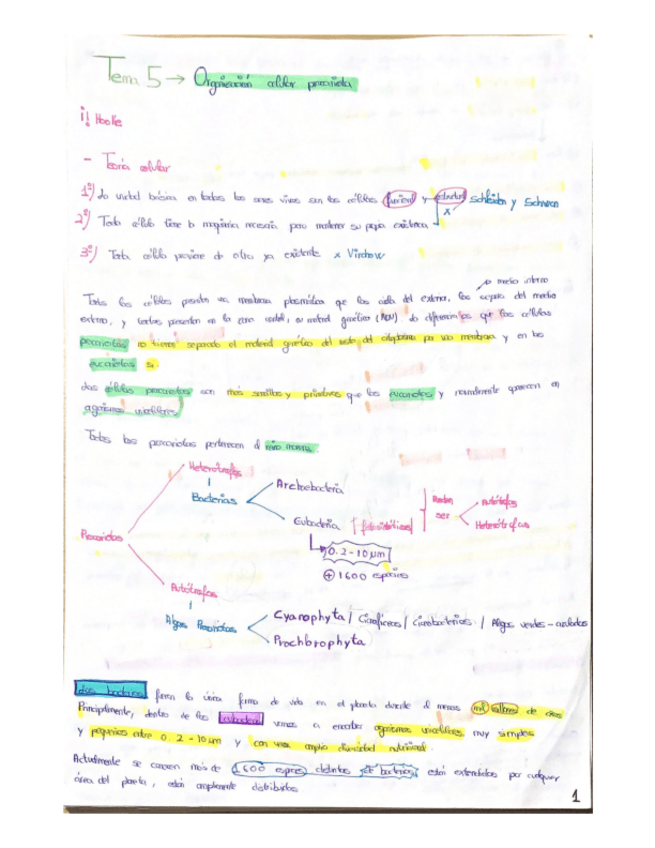 Tema 5 → Organización celular procariota
¡! Hooke
- Teoría celular
1º) La unidad básica en todos los seres vivos son las células (funcional y estructural) Schleiden y Schwann
2º) Toda célula tiene la maquinaria necesaria para mantener su propia existencia x
3º) Toda célula proviene de otra ya existente x Virchow
→ medio interno
Todas las células presentan una membrana plasmática que las aísla del exterior, las separa del medio
externo, y todas presentan en la zona central, su material genético (ADN) la diferencia es que las células
procariotas no tienen separado el material genético del resto del citoplasma por una membrana y en las
eucariotas si.
Las células procariotas son más sencillas y primitivas que las eucariotas y normalmente aparecen en
organismos unicelulares
Todos los procariotas pertenecen al reino monera.
Procariotas
Heterótrofas
Bacterias
Archaebacteria
Eubacteria
Pueden
ser
Autótrofas
Heterótrofas
0.2-10 µm
+ 1600 especies
Autótrofas
Algas Procariotas
Cyanophyta / Cianofíceas / Cianobacterias / Algas verdes-azuladas
Prochlorophyta
Las bacterias fueron la única forma de vida en el planeta durante al menos mil millones de años
Principalmente, dentro de las eubacterias vamos a encontrar organismos unicelulares muy simples
y pequeños entre 0.2-10 µm y con una amplia diversidad nutricional.
Actualmente se conocen más de 1600 especies distintas de bacterias, están extendidas por cualquier
área del planeta, están ampliamente distribuidas
1